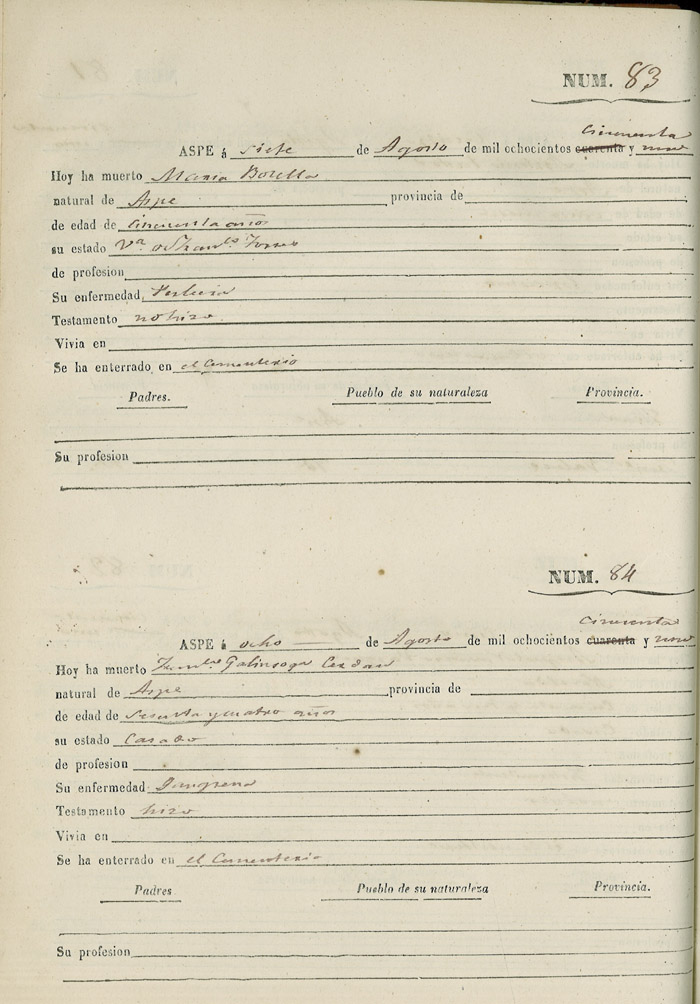 NUM. 83
cincuenta
ASPE á siete de Agosto de mil ochocientos cuarenta y nuve
Hoy ha muerto Maria Botella
natural de Aspe provincia de
de edad de cincuenta años
su estado Vª. de Franco. Torres
de profesion
Su enfermedad,
Testamento no hizo
Vivia en
Se ha enterrado en el Cementerio
Padres. Pueblo de su naturaleza Provincia.
Su profesion
NUM. 84
cincuenta
ASPE á ocho de Agosto de mil ochocientos cuarenta y nuve
Hoy ha muerto Galinsoga Cerdan
natural de Aspe provincia de
de edad de sesenta y cuatro años
su estado Casado
de profesion
Su enfermedad Gangrena
Testamento hizo
Vivia en
Se ha enterrado en el Cementerio
Padres Pueblo de su naturaleza Provincia.
Su profesion